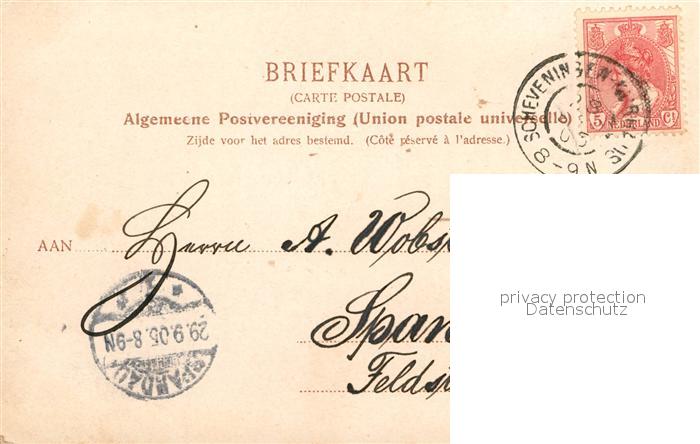 BRIEFKAART
(CARTE POSTALE)
Algemeene Postvereeniging (Union postale universelle)
Zijde voor het adres bestemd. (Côté réservé à l'adresse.)
5 Ct
NEDERLAND
SCHEVENINGEN
8-9N
AAN Herrn A. Wobs
Span
Felds
SPANDAU
29.9.05.8-9N
privacy protection
Datenschutz